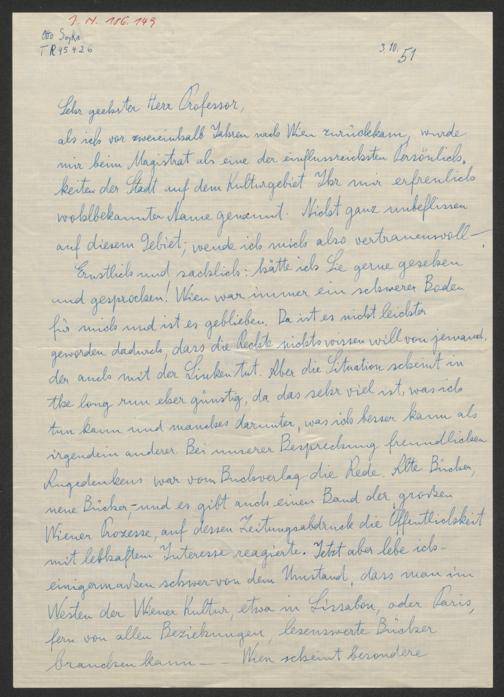 I. N. 186.149
Otto Soyka
TR 45426
3. 10. 51
Sehr geehrter Herr Professor,
als ich vor zweieinhalb Jahren nach Wien zurückkam, wurde
mir beim Magistrat als eine der einflussreichsten Persönlich-
keiten der Stadt auf dem Kulturgebiet Ihr mir erfreulich
wohlbekannter Name genannt. Nicht ganz unbeflissen
auf diesem Gebiet, wende ich mich also vertrauensvoll –.
Ernstlich und sachlich: hätte ich Sie gerne gesehen
und gesprochen! Wien war immer ein schwerer Boden
für mich und ist es geblieben. Da ist es nicht leichter
geworden dadurch, dass die Rechte nichts wissen will von jemand,
der auch mit der Linken tut. Aber die Situation scheint in
the long run eher günstig, da das sehr viel ist, was ich
tun kann und manches darunter, was ich besser kann als
irgendein anderer. Bei unserer Besprechung freundlichen
Angedenkens war vom Buchverlag die Rede. Alte Bücher,
neue Bücher – und es gibt auch einen Band der großen
Wiener Prozesse, auf dessen Zeitungsabdruck die Öffentlichkeit
mit lebhaftem Interesse reagierte. Jetzt aber lebe ich –
einigermaßen schwer – von dem Umstand, dass man im
Westen der Wiener Kultur, etwa in Lissabon, oder Paris,
fern von allen Beziehungen, lesenswerte Bücher
brauchen kann — Wien scheint besondere